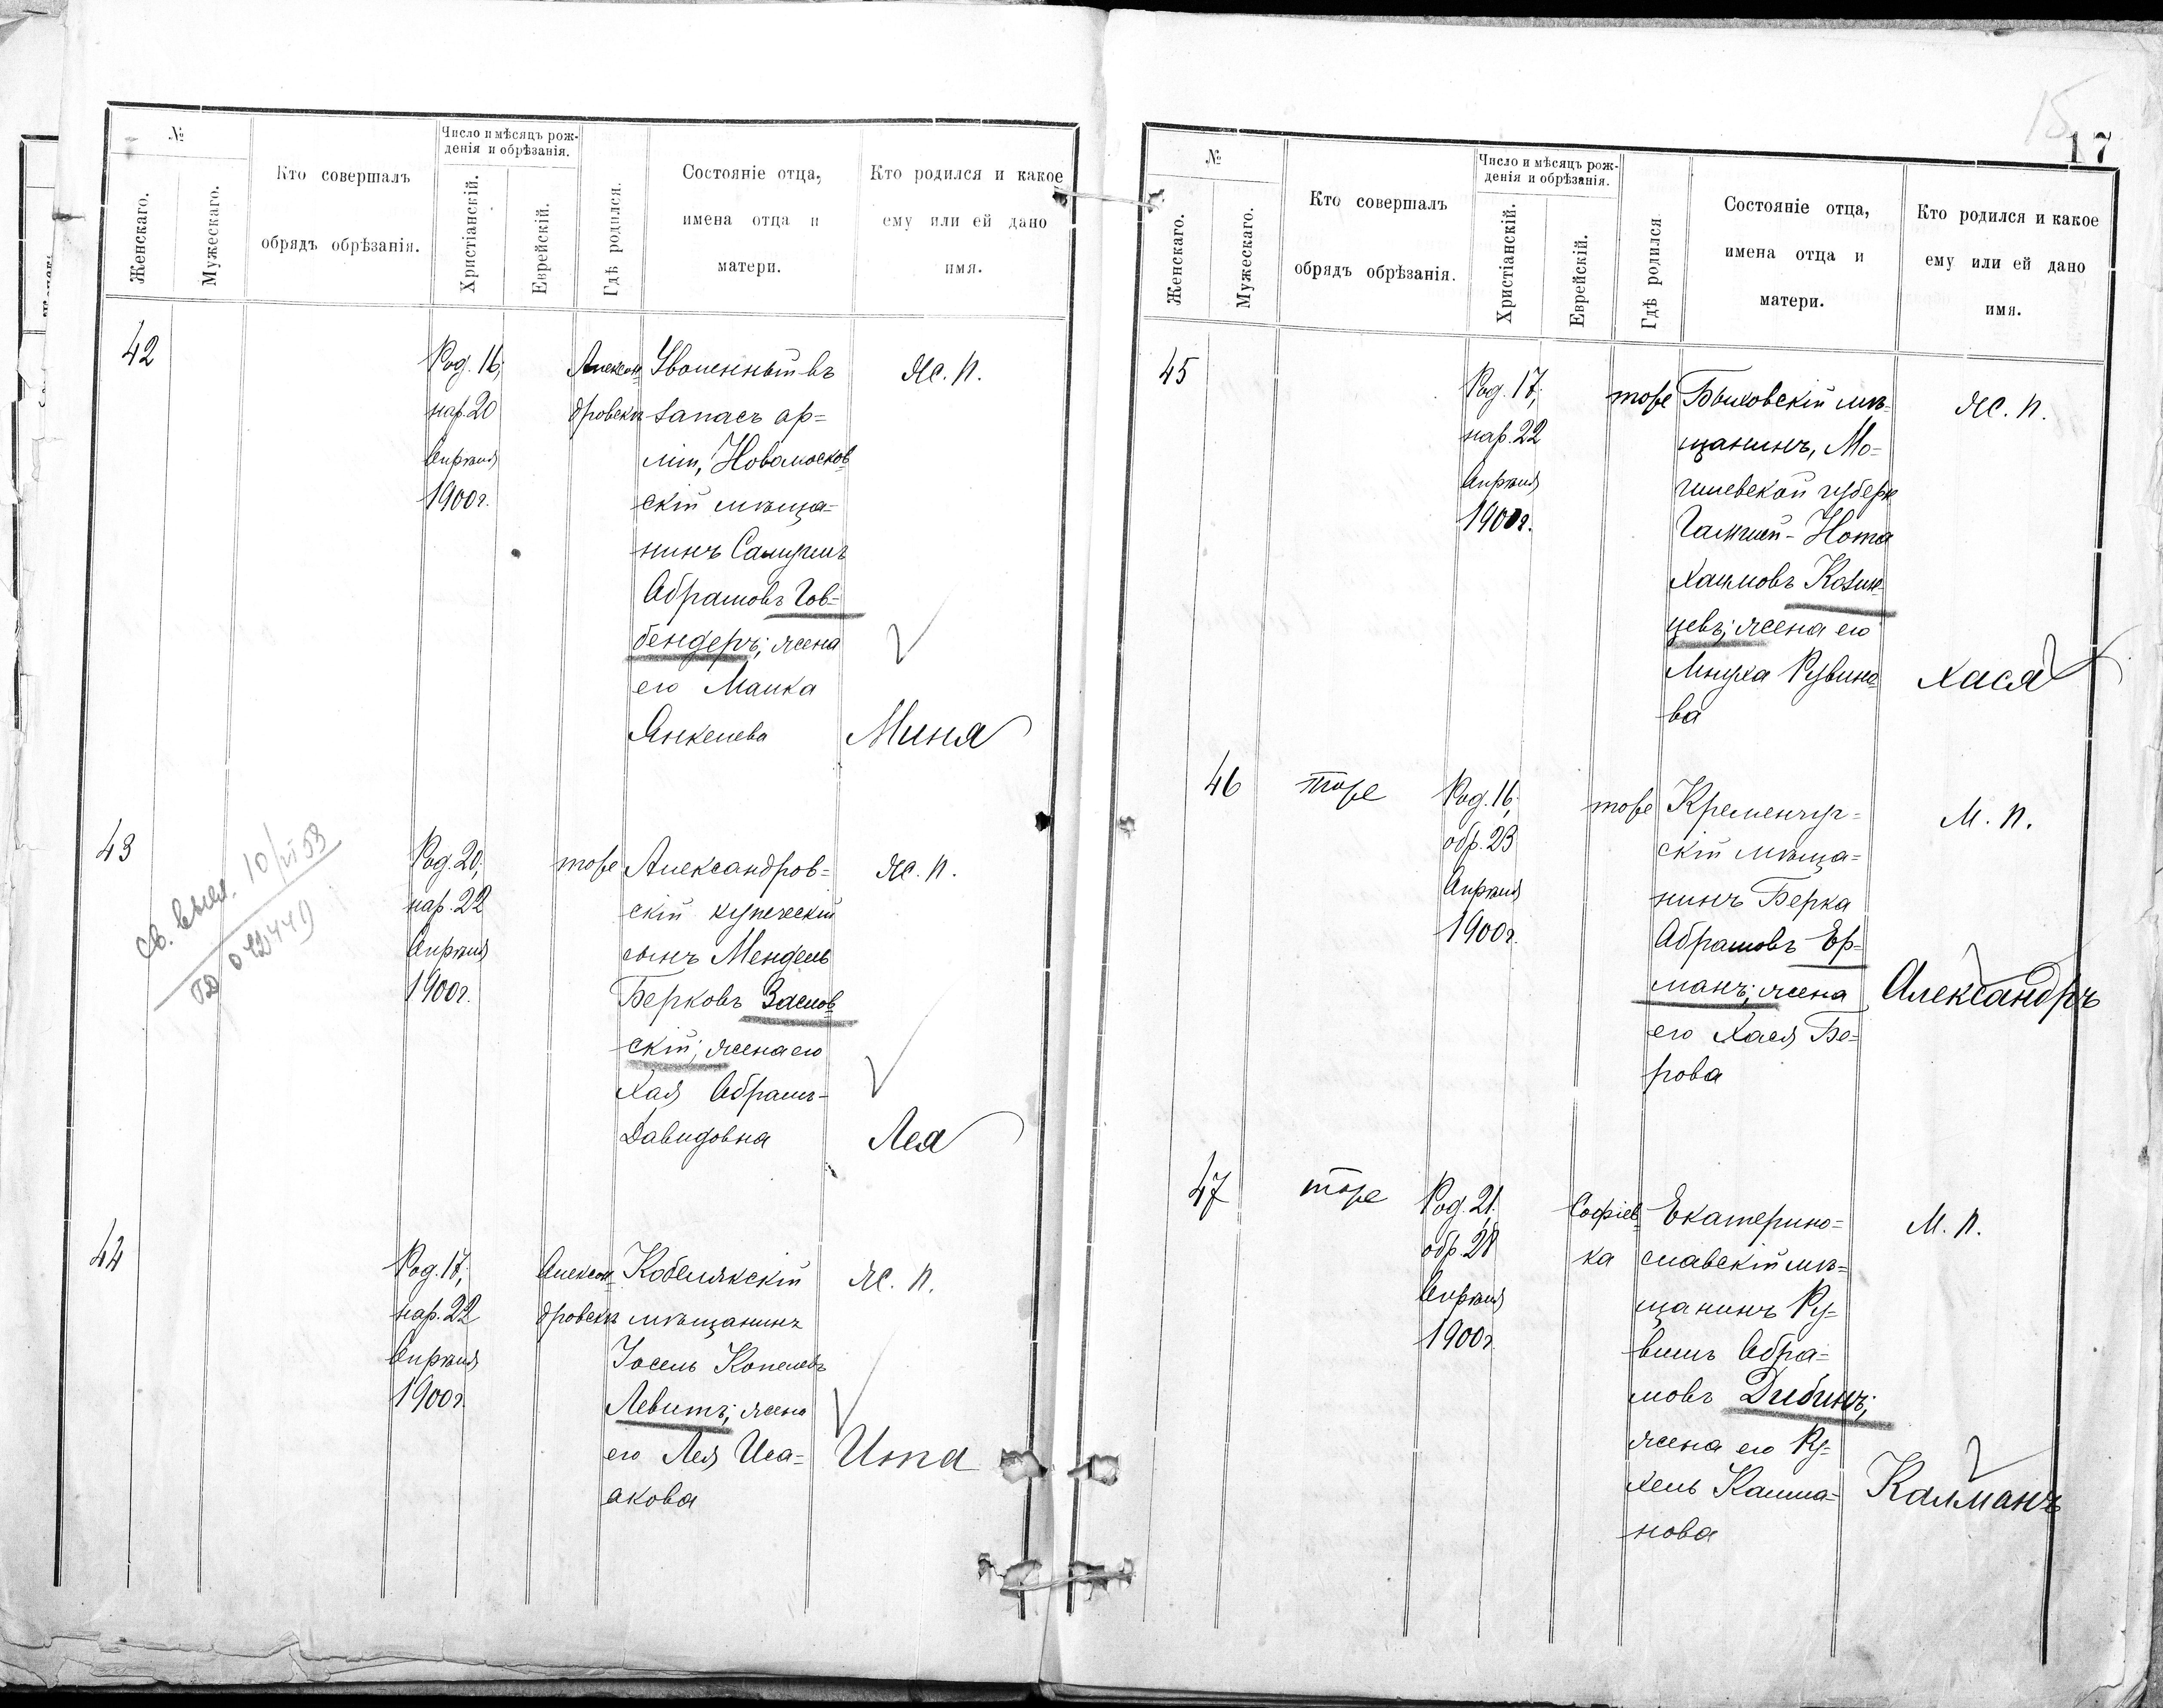 №
Женскаго.
Мужескаго.
Кто совершалъ
обрядъ обрѣзанія.
Число и мѣсяцъ рож-
денія и обрѣзанія.
Христіанскій.
Еврейскій.
Гдѣ родился.
Состояніе отца,
имена отца и
матери.
Кто родился и какое
ему или ей дано
имя.
42
Род. 16,
нар. 20
Апрѣля
1900г.
Алексан=
дровскъ
Уволенный въ
запасъ ар=
міи, Новомосков=
скій мѣща=
нинъ Самуилъ
Абрамовъ Гов=
бендеръ; жена
его Малка
Янкелева
Ж. п.
Миня
43
св. выд. 10/VI 53
Род. 20,
нар. 22
Апрѣля
1900г.
тоже
Александров=
скій купеческій
сынъ Мендель
Берковъ Заслов=
скій; жена его
Хая Абрамъ-
Давидовна
Ж. п.
Лея
44
Род. 17,
нар. 22
Апрѣля
1900г.
Алексан=
дровскъ
Кобелякскій
мѣщанинъ
Іосель Копелевъ
Левитъ; жена
его Лея Иса=
акова
Ж. п.
Ита
15
17
№
Женскаго.
Мужескаго.
Кто совершалъ
обрядъ обрѣзанія.
Число и мѣсяцъ рож-
денія и обрѣзанія.
Христіанскій.
Еврейскій.
Гдѣ родился
Состояніе отца,
имена отца и
матери.
Кто родился и какое
ему или ей дано
имя.
45
Род. 17,
нар. 22
Апрѣля
1900г.
тоже
Быховскій мѣ=
щанинъ, Мо=
гилевской губерн
Нота
Хаимовъ Козин=
цевъ; жена его
Мнуха Рувино=
ва
Ж. п.
Хася
46
тоже
Род. 16,
обр. 23
Апрѣля
1900г.
тоже
Кременчуг=
скій мѣща=
нинъ Берка
Абрамовъ Ер=
манъ; жена
его Хася Бе=
рова
М. п.
Александръ
47
тоже
Род. 21,
обр. 28
Апрѣля
1900г.
Софіев=
ка
Екатерино=
славскій мѣ=
щанинъ Ру=
винъ Абра=
мовъ Дибинъ;
жена его Ру=
хель Калма=
нова
М. п.
Калманъ